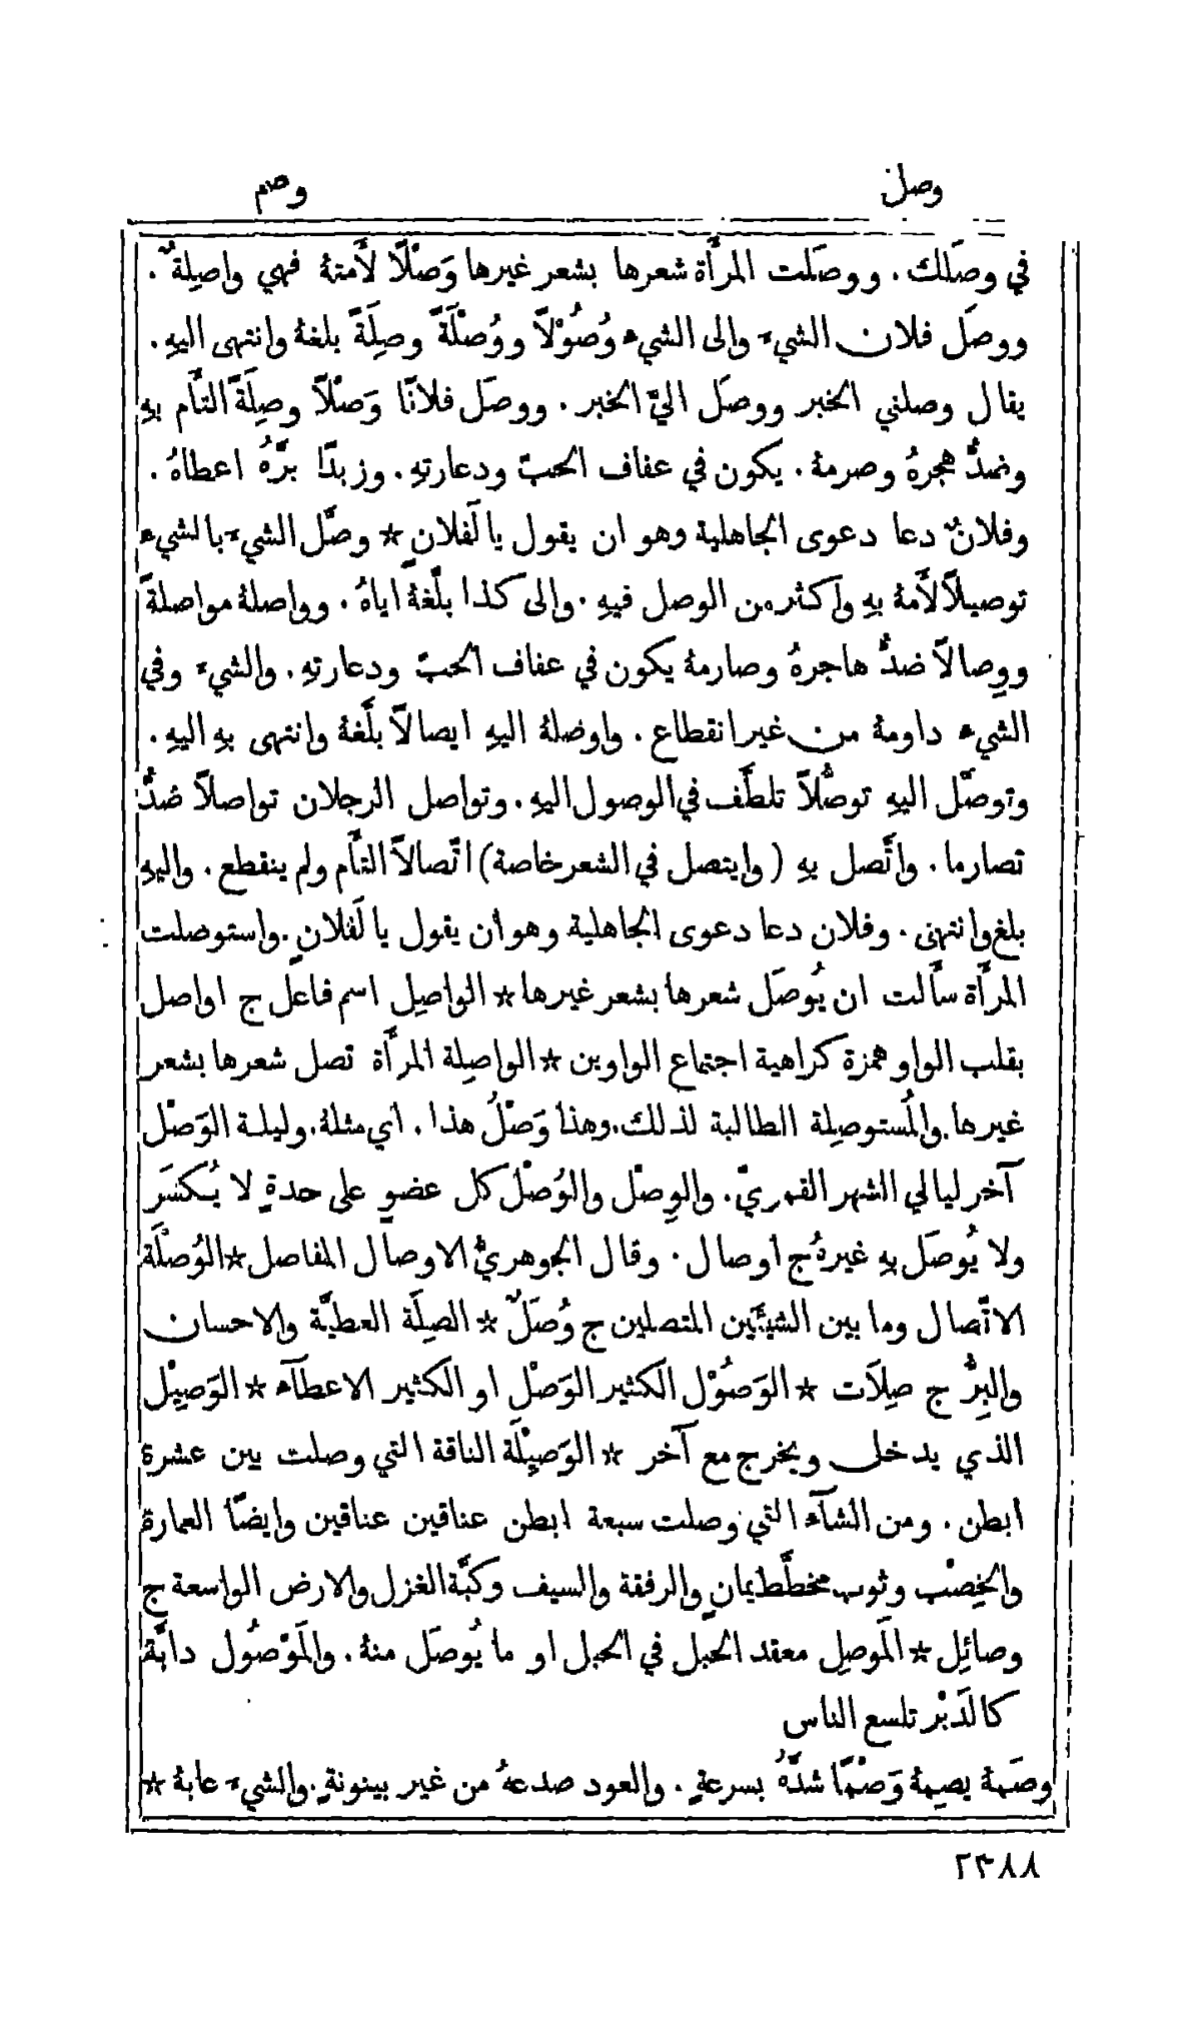 وصل
وصم
في وصَلك . ووصَلت المرأَة شعرها بشعر غيرها وَصْلًا لأَمتهُ فهي واصِلةٌ .
ووصَل فلان الشيءَ والى الشيء وُصُوْلاً ووُصْلَةً وصِلَةً بلغهُ وانتهى اليهِ .
يقال وصلني الخبر ووصَل اليَّ الخبر . ووصَل فلانًا وَصْلاً وصِلَةً التأَم بهِ
وضدُّ هجرهُ وصرمهُ . يكون في عفاف الحبّ ودعارتهِ . وزيدًا برَّهُ اعطاهُ .
وفلانٌ دعا دعوى الجاهلية وهو ان يقول يا لَفلانٍ * وصَّل الشيءَ بالشيء
توصيلاً لأَمهُ بهِ واكثر من الوصل فيهِ . والى كذا بلَّغهُ اياهُ . وواصلهُ مواصلةً
ووِصالاً ضدُّ هاجرهُ وصارمهُ يكون في عفاف الحبّ ودعارتهِ . والشيءَ وفي
الشيء داومهُ من غير انقطاع . واوصلهُ اليهِ ايصالاً بلَّغهُ وانتهى بهِ اليهِ .
وتوصَّل اليهِ توصُّلاً تلطَّف في الوصول اليهِ . وتواصل الرجلان تواصلاً ضدُّ
تصارما . واتَّصل بهِ (وايتصل في الشعر خاصة) اتّصالاً التأَم ولم ينقطع . واليهِ
بلغ وانتهى . وفلان دعا دعوى الجاهلية وهو ان يقول يا لَفلانٍ . واستوصلت
المرأَة سأَلت ان يُوصَل شعرها بشعر غيرها * الواصِل اسم فاعل ج اواصل
بقلب الواو همزة كراهية اجتماع الواوين * الواصِلة المرأَة تصل شعرها بشعر
غيرها . والمُستوصِلة الطالبة لذلك . وهذا وَصْلُ هذا . اي مثلهُ . وليلة الوَصْل
آخر ليالي الشهر القمريّ . والوِصْل والوُصْل كل عضوٍ على حدةٍ لا يُكسَر
ولا يُوصَل بهِ غيرهُ ج اوصال . وقال الجوهريُّ الاوصال المفاصل * الوُصْلَة
الاتّصال وما بين الشيئَين المتصلين ج وُصَلٌ * الصِلَة العطيَّة والاحسان
والبِرُّ ج صِلاَت * الوَصُوْل الكثير الوَصْل او الكثير الاعطآء * الوَصِيْل
الذي يدخل ويخرج مع آخر * الوَصِيْلَة الناقة التي وصلت بين عشرة
ابطن . ومن الشآء التي وصلت سبعة ابطن عناقين عناقين وايضًا العمارة
والخِصْب وثوب مخطَّط يمانٍ والرفقة والسيف وكبَّة الغزل والارض الواسعة ج
وصائِل * المَوصِل معقد الحبل في الحبل او ما يُوصَل منهُ . والمَوْصُول دابَّة
كالدَبْر تلسع الناس
وصَمهُ يصِمهُ وَصْمًا شدَّهُ بسرعةٍ . والعود صدعهُ من غير بينونةٍ . والشيءَ عابهُ *
٢٣٨٨